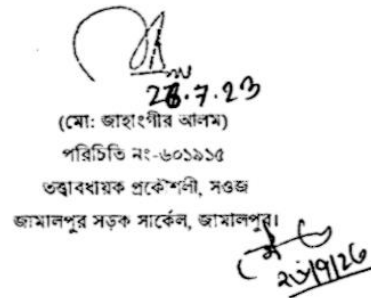 26.7.23
(মো: জাহাংগীর আলম)
পরিচিতি নং-৬০১৯১৫
তত্ত্বাবধায়ক প্রকৌশলী, সওজ
জামালপুর সড়ক সার্কেল, জামালপুর।